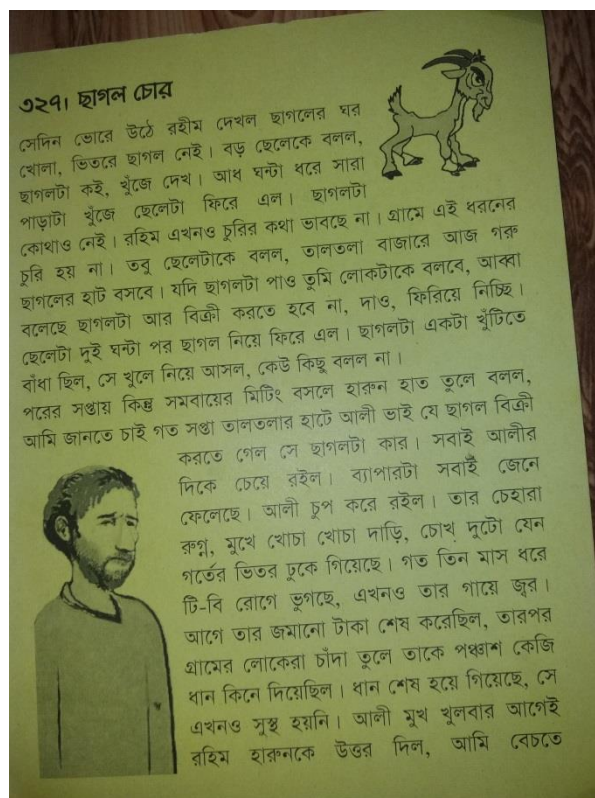 ৩২৭। ছাগল চোর
সেদিন ভোরে উঠে রহীম দেখল ছাগলের ঘর
খোলা, ভিতরে ছাগল নেই। বড় ছেলেকে বলল,
ছাগলটা কই, খুঁজে দেখ। আধ ঘন্টা ধরে সারা
পাড়াটা খুঁজে ছেলেটা ফিরে এল। ছাগলটা
কোথাও নেই। রহিম এখনও চুরির কথা ভাবছে না। গ্রামে এই ধরনের
চুরি হয় না। তবু ছেলেটাকে বলল, তালতলা বাজারে আজ গরু
ছাগলের হাট বসবে। যদি ছাগলটা পাও তুমি লোকটাকে বলবে, আব্বা
বলেছে ছাগলটা আর বিক্রী করতে হবে না, দাও, ফিরিয়ে নিচ্ছি।
ছেলেটা দুই ঘন্টা পর ছাগল নিয়ে ফিরে এল। ছাগলটা একটা খুঁটিতে
বাঁধা ছিল, সে খুলে নিয়ে আসল, কেউ কিছু বলল না।
পরের সপ্তায় কিন্তু সমবায়ের মিটিং বসলে হারুন হাত তুলে বলল,
আমি জানতে চাই গত সপ্তা তালতলার হাটে আলী ভাই যে ছাগল বিক্রী
করতে গেল সে ছাগলটা কার। সবাই আলীর
দিকে চেয়ে রইল। ব্যাপারটা সবাই জেনে
ফেলেছে। আলী চুপ করে রইল। তার চেহারা
রুগ্ন, মুখে খোচা খোচা দাড়ি, চোখ দুটো যেন
গর্তের ভিতর ঢুকে গিয়েছে। গত তিন মাস ধরে
টি-বি রোগে ভুগছে, এখনও তার গায়ে জ্বর।
আগে তার জমানো টাকা শেষ করেছিল, তারপর
গ্রামের লোকেরা চাঁদা তুলে তাকে পঞ্চাশ কেজি
ধান কিনে দিয়েছিল। ধান শেষ হয়ে গিয়েছে, সে
এখনও সুস্থ হয়নি। আলী মুখ খুলবার আগেই
রহিম হারুনকে উত্তর দিল, আমি বেচতে